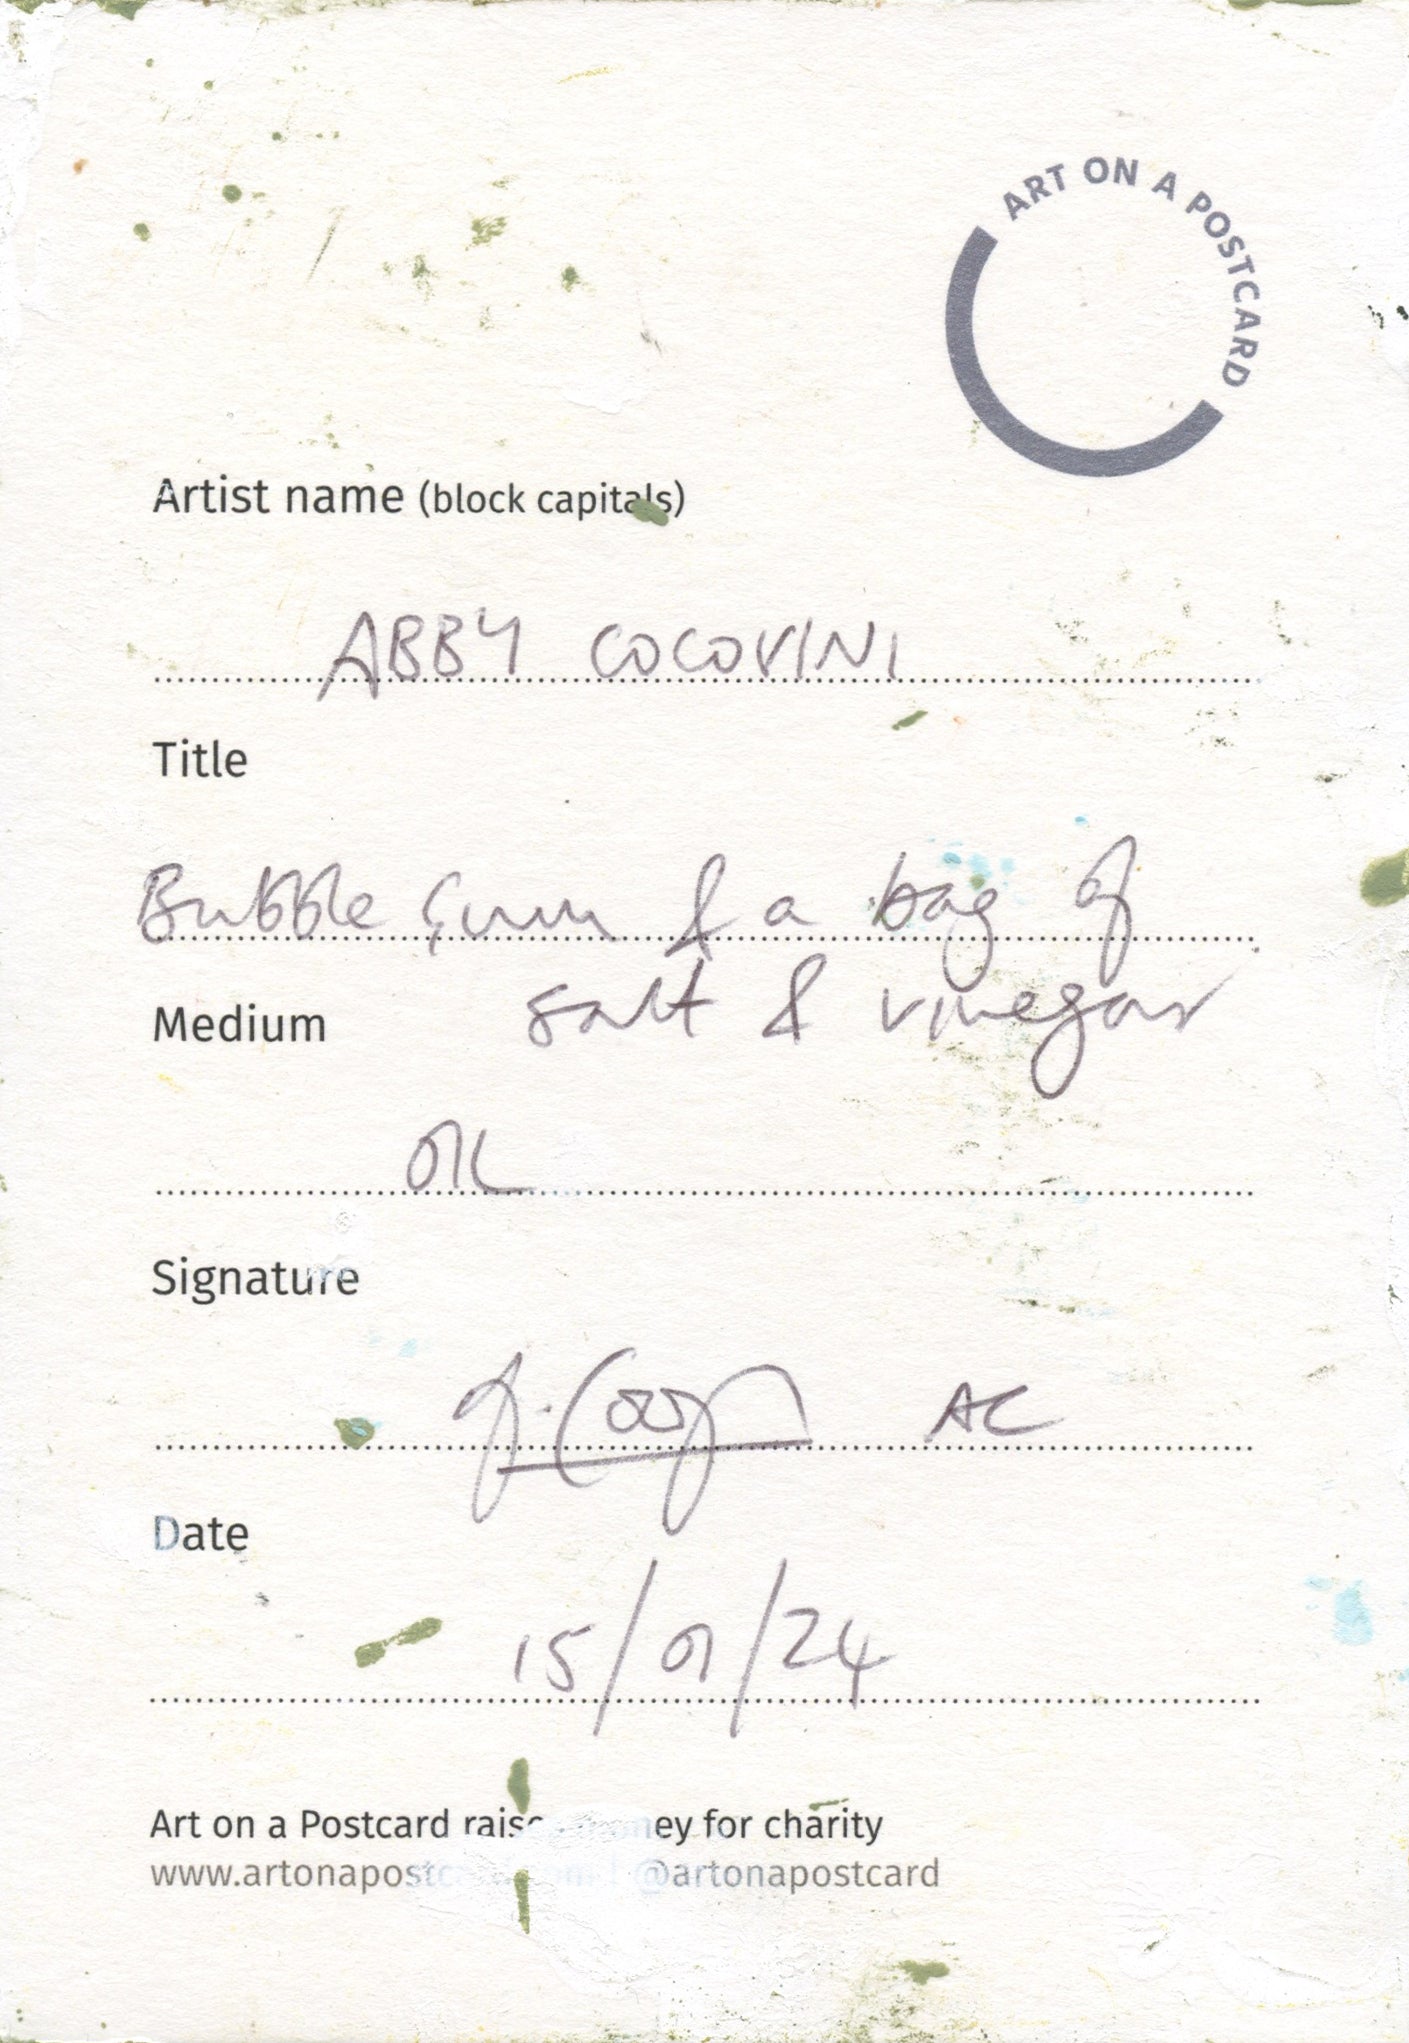 ART ON A POSTCARD
Artist name (block capitals)
ABBY COCOVINI
Title
Bubble Gum & a bag of
salt & vinegar
Medium
OIL
Signature
AC
Date
15/01/24
Art on a Postcard raises money for charity
www.artonapostcard.com | @artonapostcard